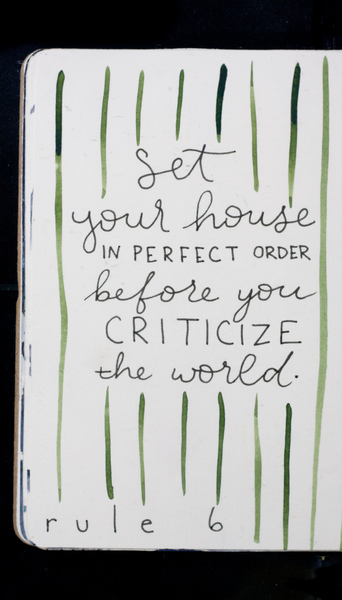 Set
your house
IN PERFECT ORDER
before you
CRITICIZE
the world.
rule 6